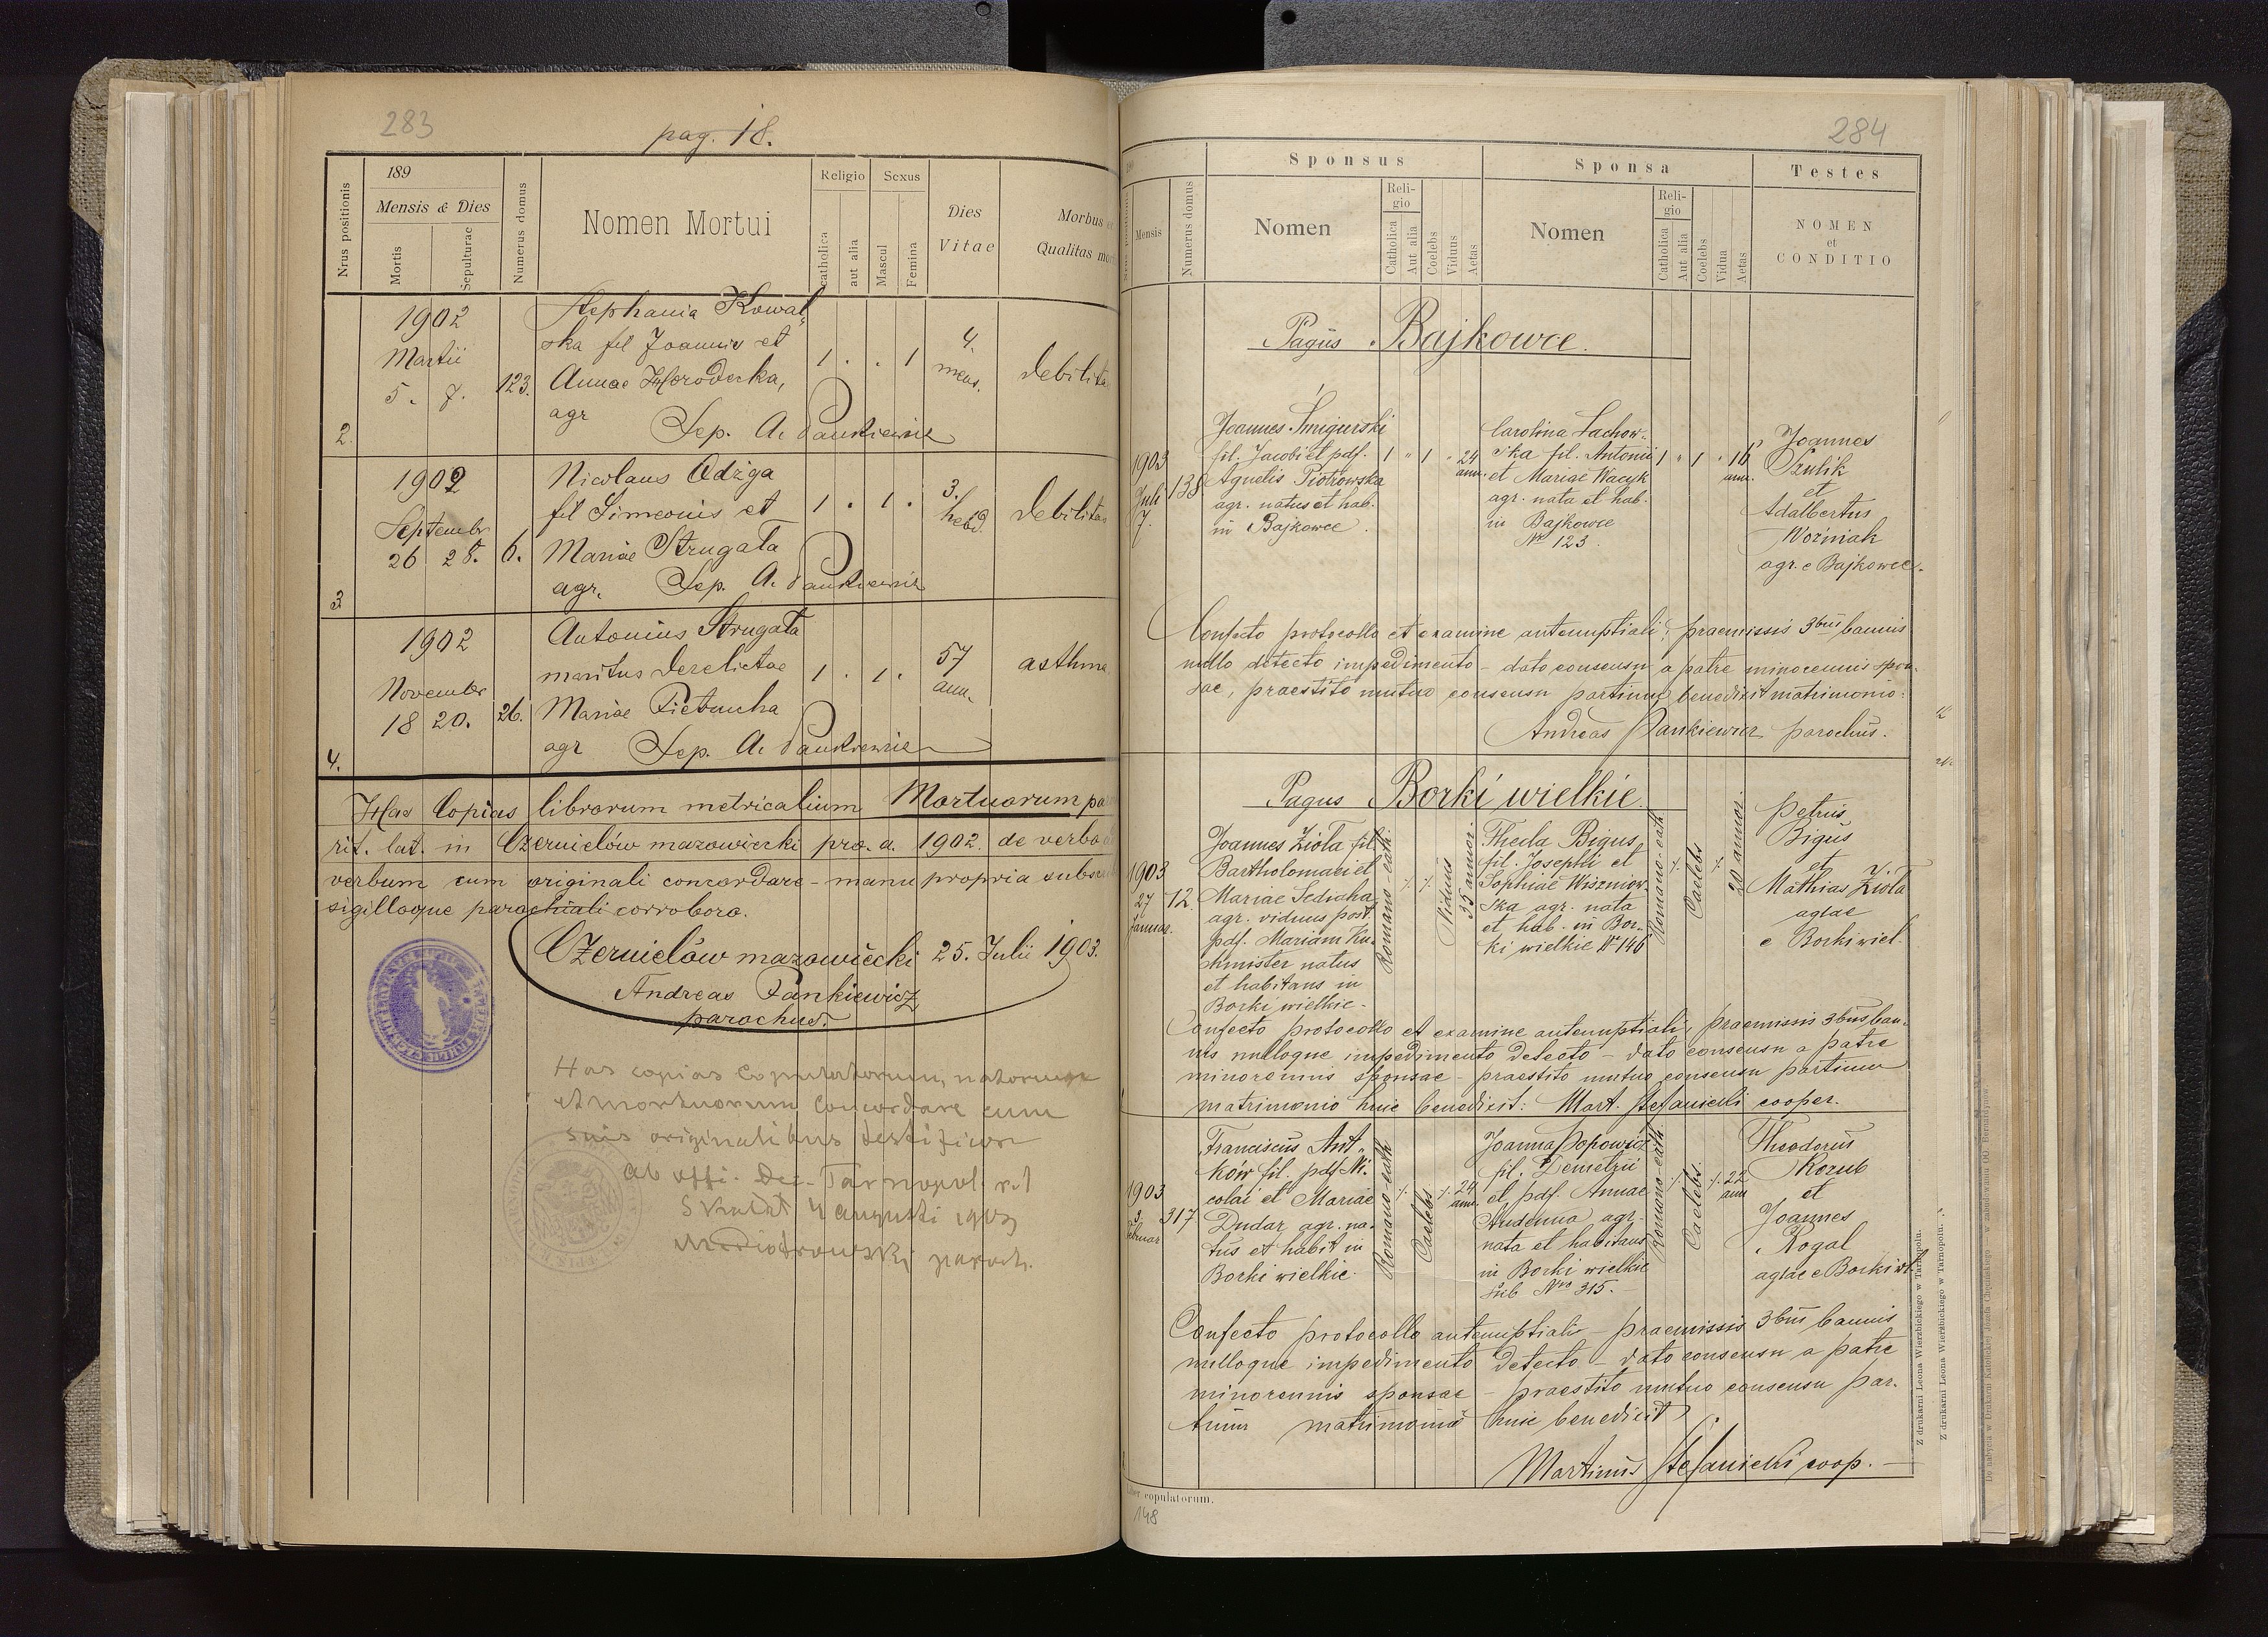 283
pag. 18.
Nrus positionis
189
Mensis & Dies
Mortis
Sepulturae
Numerus domus
Nomen Mortui
Religio
catholica
aut alia
Sexus
Mascul
Femina
Dies
Vitae
Morbus et
Qualitas mor
2.
1902
Martii
5. 7.
123.
Stephania Kowal-
ska fil Joannis et
Annae Horodecka,
agr
Sep. A. Pankiewicz
1 . . 1
4.
mens.
debilita
3
1902
Septembr
26 28.
6.
Nicolaus Odżga
fil Simeonis et
Mariae Strugała
agr. Sep. A. Pankiewicz
1 . 1 .
3.
hebd.
debilitas
4.
1902
Novembr
18 20.
26.
Antonius Strugała
maritus derelictae
Mariae Pietrucha
agr Sep. A. Pankiewicz
1 . 1 .
57
ann.
asthma
Has Copias librorum metricalium Mortuorum pa
rit. lat. in Czernielów mazowiecki pro. a. 1902. de verbo a
verbum cum originali concordare - manu propria subsc
sigilloque parochiali corroboro.
Czernielów mazowiecki 25. Julii 1903.
Andreas Pankiewicz
parochus.
Has copias Copulatorum, natorum
et mortuorum concordare cum
suis originalibus testificor
Ab offi. Dec. Tarnopol. r. l
Skałat 4 augusti 1903
paroch.
284
Mensis
Numerus domus
Sponsus
Nomen
Reli-
gio
Catholica
Aut alia
Coelebs
Viduus
Aetas
Sponsa
Nomen
Reli-
gio
Catholica
Aut alia
Coelebs
Vidua
Aetas
Testes
NOMEN
et
CONDITIO
Pagus Bajkowce.
1903
Juli
7.
138
Joannes Śmigurski
fil. Jacobi et pdf.
Agnetis Piotrowska
agr. natus et hab.
in Bajkowce.
1 " 1 " 24
ann.
Carolina Lachow-
ska fil. Antonii
et Mariae Wacyk
agr. nata et hab.
in Bajkowce
Nr 123.
1 " 1 " 16
ann.
Joannes
Szulik
et
Adalbertus
Woźniak
agr. e Bajkowce.
Confecto protocollo et examine antenuptiali, praemissis 3bus bannis
nullo detecto impedimento - dato consensu a patre minorennis spon-
sae, praestito mutuo consensu partium, benedixit matrimonio:
Andreas Pankiewicz parochus.
Pagus Borki wielkie.
1903
27
Januar.
12.
Joannes Zioła fil.
Bartholomaei et
Mariae Sedlaha
agr. viduus post.
pdf. Mariam Ku-
chmister natus
et habitans in
Borki wielkie.
Romano-cath.
Viduus
35 annor.
Thecla Bigus
fil. Josephi et
Sophiae Wiszniow-
ska agr. nata
et hab. in Bor-
ki wielkie Nr 146
Romano-cath.
Caelebs
20 annor.
Petrus
Bigus
et
Mathias Zioła
aglae
e Borki wiel.
Confecto protocollo et examine antenuptiali, praemissis 3bus ban-
nis nulloque impedimento detecto - dato consensu a patre
minorennis sponsae - praestito mutuo consensu partium
matrimonio huic benedixit: Mart. Stefanicki cooper.
1903
3
Februar
317
Franciscus Ant-
ków fil. pdf. Ni-
colai et Mariae
Dudar agr. na-
tus et habit in
Borki wielkie.
Romano-cath
Caelebs
24
ann.
Joanna Popowicz
fil. Demetrii
et pdf. Annae
agr.
nata et habitans
in Borki wielkie
sub Nro 315.
Romano-cath
Caelebs
22
ann
Theodorus
Kozub
et
Joannes
Rogal
aglae e Borki wl.
Confecto protocollo antenuptiali - praemissis 3bus bannis
nulloque impedimento detecto - dato consensu a patre
minorennis sponsae - praestito mutuo consensu par-
tium matrimonio huic benedixit
Martinus Stefanicki coop.
copulatorum.
148
Z drukarni Leona Wierzbickiego w Tarnopolu.
Z drukarni Leona Wierzbickiego w Tarnopolu.